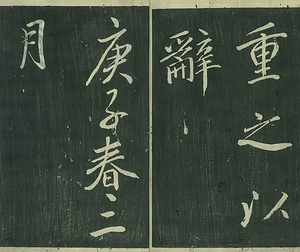 重之以
辭
庚子春二
月